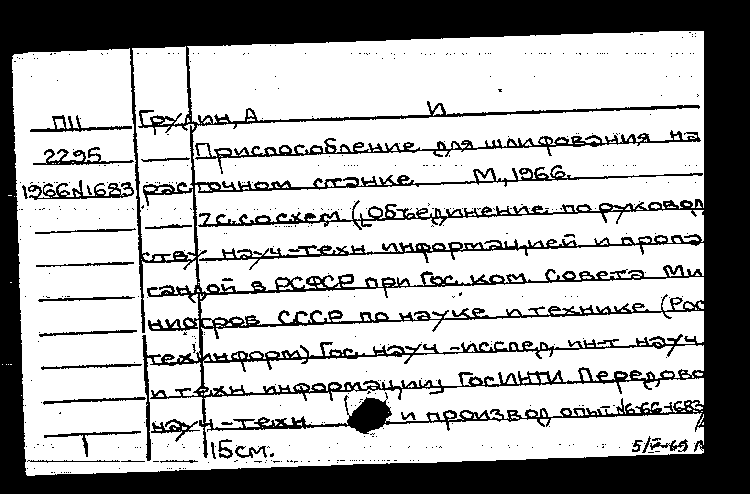 ПII Грудин, А И
2295 Приспособление для шлифования на
1966№1683 расточном станке. М., 1966.
7с. со схем (Объединение по руковод
ству науч-техн информацией и пропа
гандой в РСФСР при Гос. ком. Совета Ми
нистров СССР по науке и технике (Рос
техинформ) Гос. науч-исслед, ин-т науч.
и техн информации ГосИНТИ. Передово
науч-техн. и производ опыт №6-66-1683
1 15см.